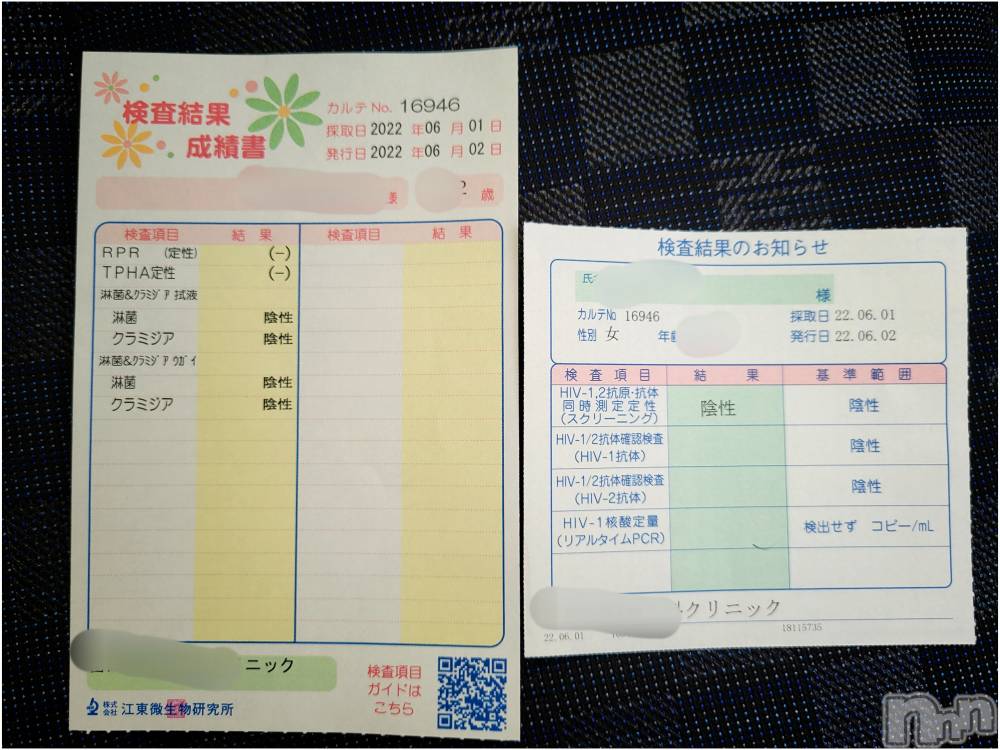 検査結果
成績書
カルテNo. 16946
採取日 2022 年 06 月 01 日
発行日 2022 年 06 月 02 日
2 歳
検査項目 結果 検査項目 結果
RPR (定性) (-)
TPHA定性 (-)
淋菌&クラミジア 拭液
淋菌 陰性
クラミジア 陰性
淋菌&クラミジア ウガイ
淋菌 陰性
クラミジア 陰性
ニック
検査項目
ガイドは
こちら
株式会社 江東微生物研究所
検査結果のお知らせ
氏
様
カルテNo 16946 採取日 22.06.01
性別 女 年齢 発行日 22.06.02
検査項目 結果 基準範囲
HIV-1,2抗原・抗体
同時測定定性
(スクリーニング)
陰性 陰性
HIV-1/2抗体確認検査
(HIV-1抗体)
陰性
HIV-1/2抗体確認検査
(HIV-2抗体)
陰性
HIV-1核酸定量
(リアルタイムPCR)
検出せず コピー/mL
クリニック
22.06.01
18115735
nnn